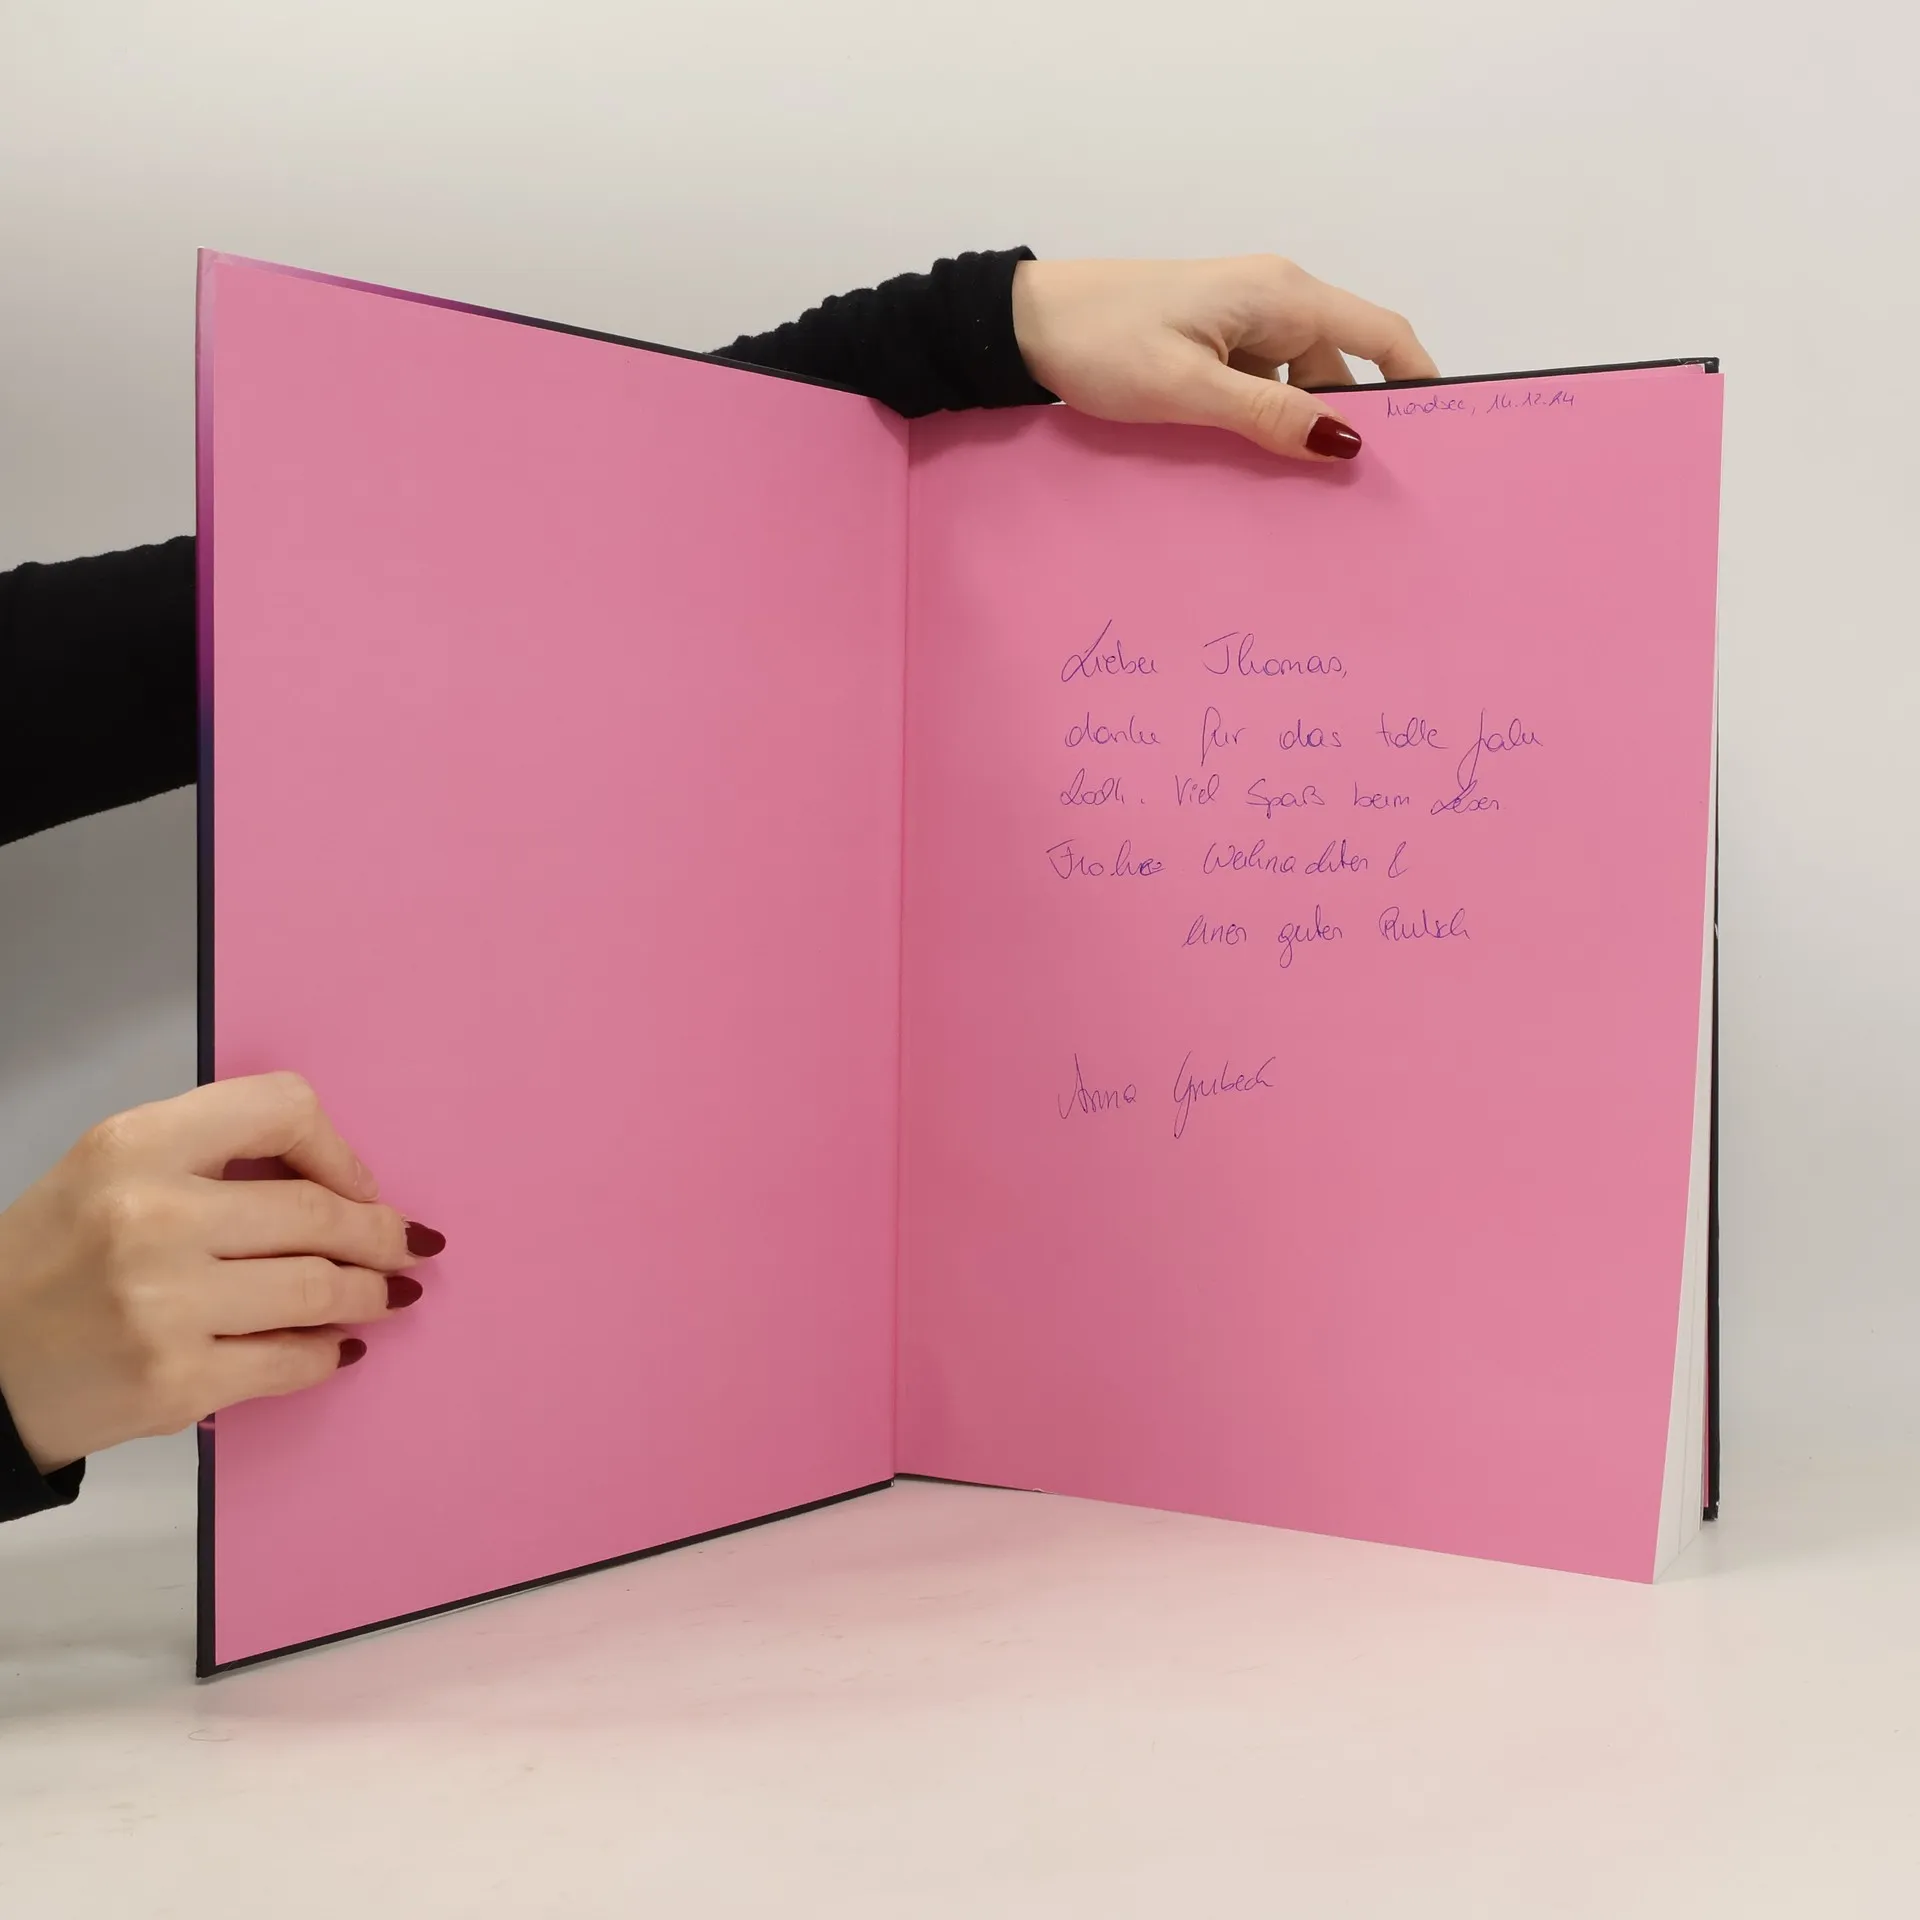 Mondsee,
Lieber Thomas,
danke für das tolle Jahr
2014. Viel Spaß beim Lesen
Frohe Weihnachten &
einen guten Rutsch
Anna